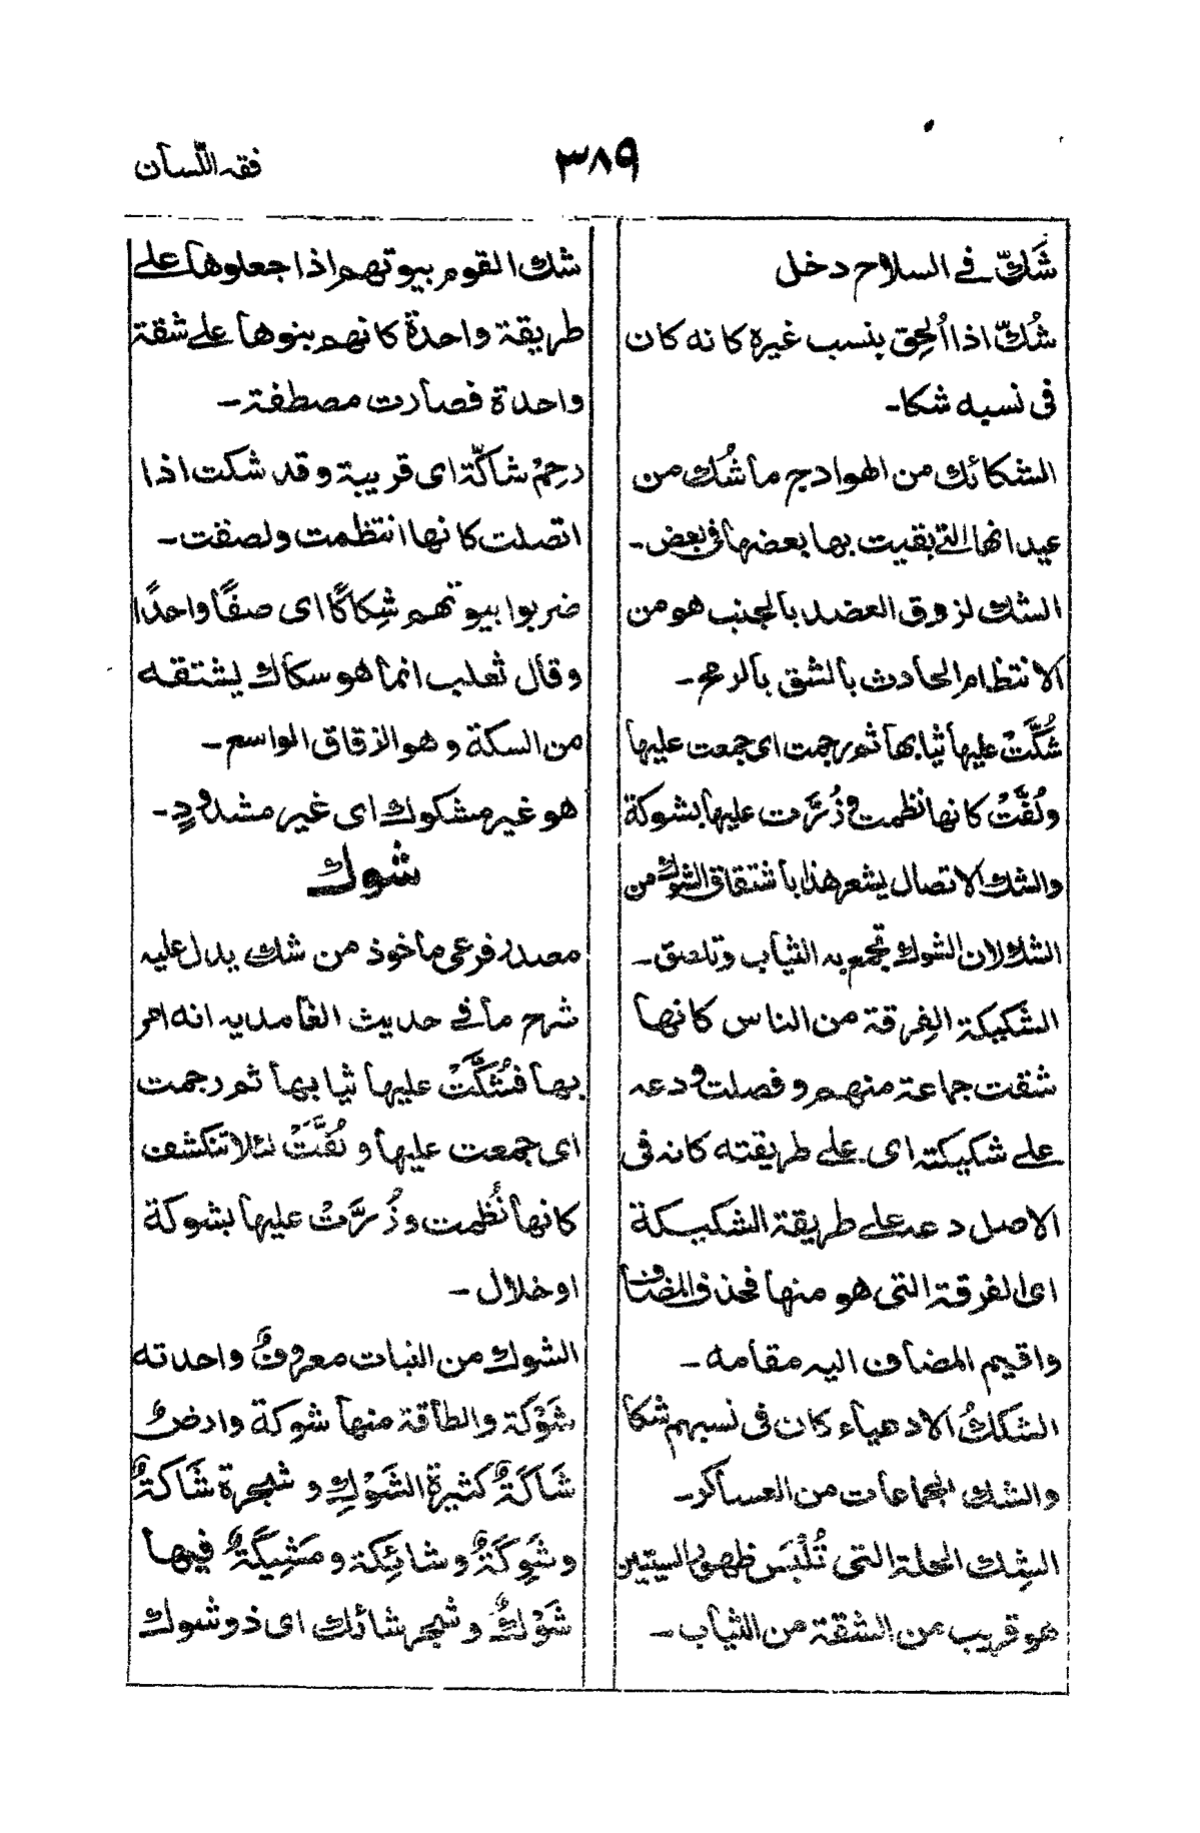 فقه اللّسان
٣٨٩
شَكّ في السلاح دخل
شُكّ اذا اُلحِق بنسب غيره كانه كان
فى نسبه شكا-
الشكائك من الهوادج ما شُك من
عيدانها التي بقيت بها بعضها فى بعض-
الشك لزوق العضد بالجنب هو من
الانتظام الحادث بالشق بالرمح-
شُكَّتْ عليها ثيابها ثم رجمت اى جمعت عليها
ولُفَّتْ كانها نظمت وزُرَّت عليها بشوكة
والشك الاتصال يشعر هذا باشتقاق الشوك من
الشك لان الشوك تجمع به الثياب وتلصق-
الشكيكة الفِرقة من الناس كانها
شقت جماعة منهم وفصلت ودعه
على شكيكته اى على طريقته كانه فى
الاصل دعه على طريقة الشكيكة
اى الفرقة التى هو منها فحذف المضاف
واقيم المضاف اليه مقامه-
الشككُ الادعياء كان فى نسبهم شكا
والشك الجماعات من العساكر-
الشِك الحلة التى تُلْبَس ظهور السيتين
هو قريب من الشقة من الثياب-
شك القوم بيوتهم اذا جعلوها على
طريقة واحدة كانهم بنوها على شقة
واحدة فصارت مصطفة-
رحِمٌ شاكّة اى قريبة وقد شكت اذا
اتصلت كانها انتظمت ولصقت-
ضربوا بيوتهم شِكاكًا اى صفًا واحدًا
وقال ثعلب انما هو سكاك يشتقه
من السكة وهو الزقاق الواسع-
هو غير مشكوك اى غير مشدودٍ-
شوك
مصدر فرعى ماخوذ من شك يدل عليه
شرح ما فى حديث الغامديه انه امر
بها فشُكَّتْ عليها ثيابها ثم رجمت
اى جمعت عليها ولُفَّتْ لئلا تنكشف
كانها نُظمت وزُرَّتْ عليها بشوكة
او خلال-
الشوك من النبات معروفٌ واحدته
شَوْكَة والطاقة منها شوكة وارضٌ
شَاكَةٌ كثيرة الشَوْكِ وشجرة شَاكَةٌ
وشَوِكَةٌ وشائِكة ومَشِيكَةٌ فيها
شَوْكٌ وشجر شائك اى ذو شوك